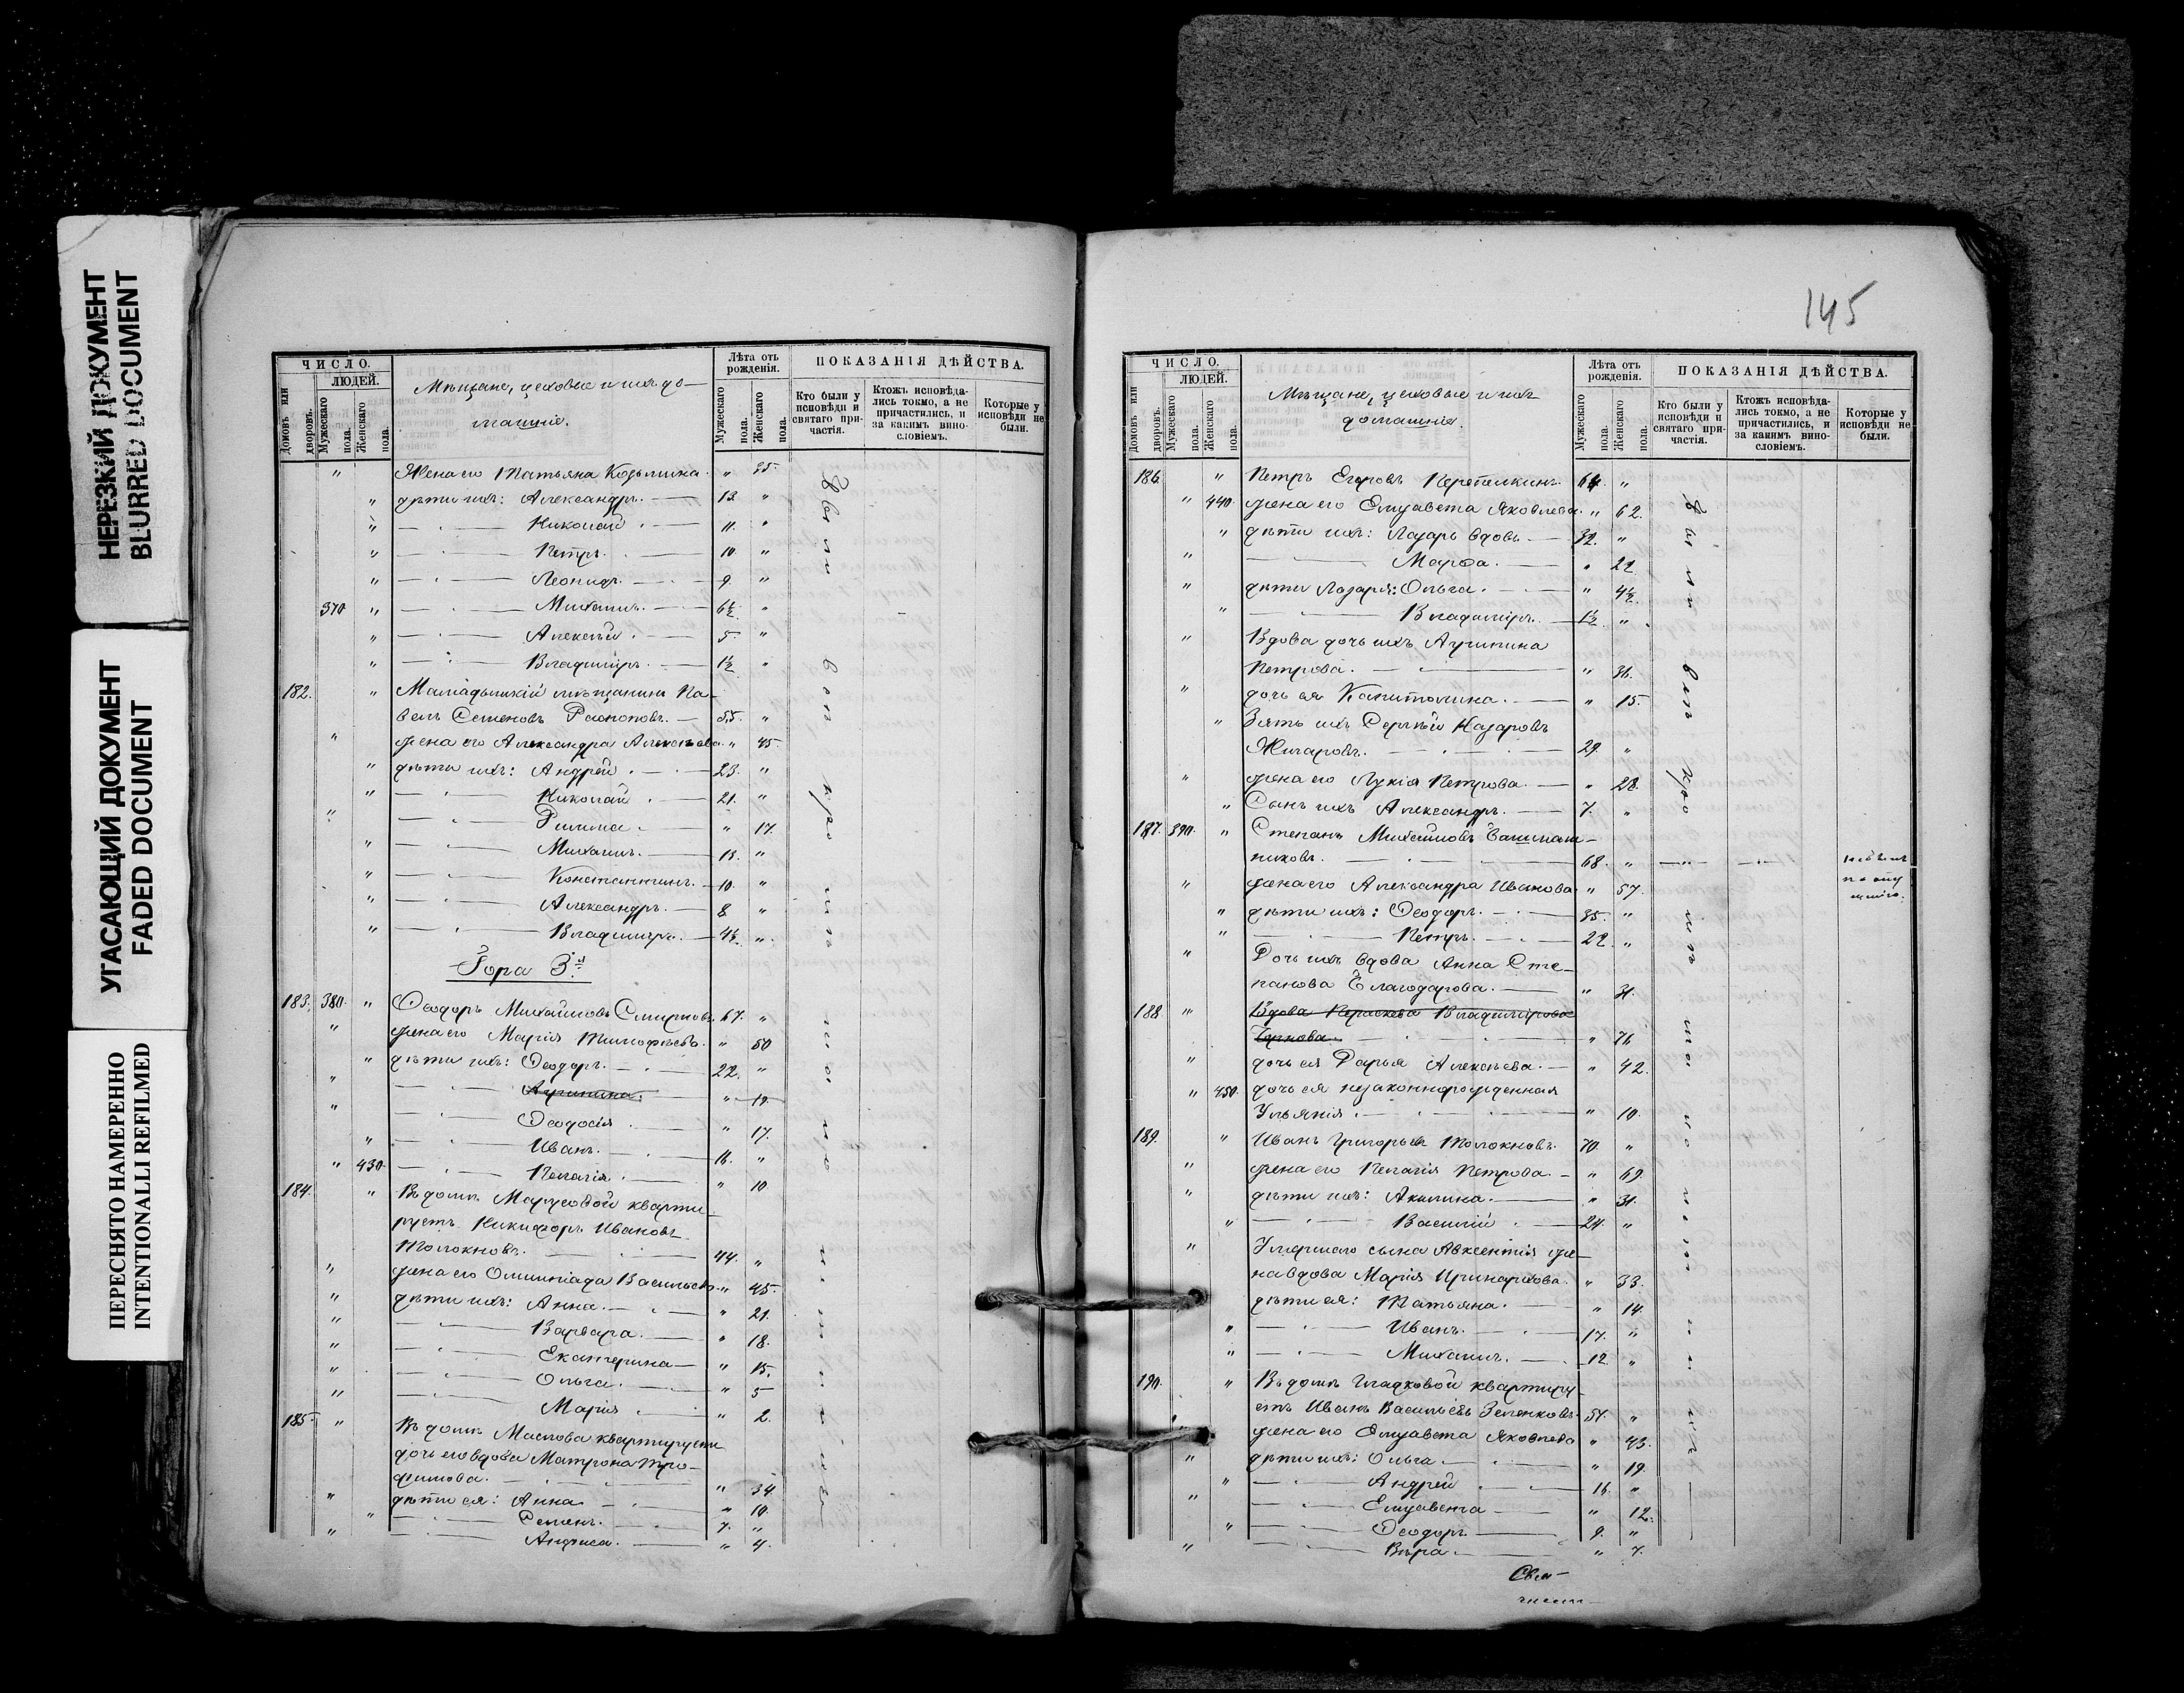 НЕРЕЗКИЙ ДОКУМЕНТ
BLURRED DOCUMENT
УГАСАЮЩИЙ ДОКУМЕНТ
FADED DOCUMENT
ПЕРЕСНЯТО НАМЕРЕННО
INTENTIONALLI REFILMED
ЧИСЛО.
ЛЮДЕЙ.
Домовъ или дворовъ.
Мужескаго пола.
Женскаго пола.
Мѣщане, цеховые и ихъ до-
машніе.
Лѣта отъ рожденія.
Мужескаго пола.
Женскаго пола.
ПОКАЗАНІЯ ДѢЙСТВА.
Кто были у исповѣди и святаго причастія.
Ктожъ исповѣдались токмо, а не причастились, и за какимъ винословіемъ.
Которые у исповѣди не были.
" Жена его Татьяна Козьмина " 35.
" дѣти ихъ: Александръ. 13. "
" Николай 11. "
" Петръ. 10. "
" Леонидъ. 9. "
370 " Михаилъ. 6½ "
" Алексѣй 5. "
" Владиміръ. 1½ "
182. " Мамадышскій мѣщанинъ Па-
велъ Семеновъ Распоповъ. 55. "
" жена его Александра Алексѣева " 45.
" дѣти ихъ: Андрей 23. "
" Николай 21. "
" Римма " 17.
" Михаилъ. 13. "
" Константинъ. 10. "
" Александръ. 8. "
" Владиміръ. 4½ "
Гора 3.я
183. 380. " Ѳеодоръ Михайловъ Смирновъ 67. "
" жена его Марія Тимоѳѣева. " 50
" дѣти ихъ: Ѳеодоръ. 22. "
" Агрипина. " 19.
" Ѳеодосія " 17.
" Иванъ. 16. "
" 430. Пелагія. " 10
184. " Въ домѣ Марусовой кварти-
руетъ Никифоръ Ивановъ
Толокновъ. 44. "
" жена его Олимпіада Васильева " 45.
" дѣти ихъ: Анна. " 21.
" Варвара. " 18.
" Екатерина " 15.
" Ольга. " 5
" Марія " 2.
185. " Въ домѣ Маслова квартируетъ
дочь его вдова Матрона Тро-
фимова. " 34.
" дѣти ея: Анна " 10.
" Семенъ. 7. "
" Анфиса. " 4.
145
ЧИСЛО.
ЛЮДЕЙ.
Домовъ или дворовъ.
Мужескаго пола.
Женскаго пола.
Мѣщане, цеховые и ихъ
домашніе.
Лѣта отъ рожденія.
Мужескаго пола.
Женскаго пола.
ПОКАЗАНІЯ ДѢЙСТВА.
Кто были у исповѣди и святаго причастія.
Ктожъ исповѣдались токмо, а не причастились, и за какимъ винословіемъ.
Которые у исповѣди не были.
186. " Петръ Егоровъ Перепелкинъ 64. "
" 440. жена его Елизавета Яковлева. " 62.
" дѣти ихъ: Лазарь вдовъ 32. "
" Марѳа. " 22
" дѣти Лазаря: Ольга. " 4½
" Владиміръ. 1½ "
" Вдова дочь ихъ Агрипина
Петрова. " 36.
" дочь ея Капитолина. " 15.
" Зять ихъ Сергѣй Назаровъ
Жигаровъ. 29. "
" жена его Лукія Петрова. " 28.
" Сынъ ихъ Александръ. 7. "
187. 390. " Степанъ Михайловъ Башмаш-
никовъ. 68. "
" жена его Александра Иванова " 57.
" дѣти ихъ: Ѳеодоръ. 35. "
" Петръ. 22. "
" Дочь ихъ вдова Анна Сте-
панова Благодарова. " 31.
188. " Вдова Параскева Владимірова
Чернова. " 76
" дочь ея Дарья Алексѣева. " 42.
" 450. дочь ея незаконнорожденная
Ульянія. " 10.
189. " Иванъ Григорьевъ Толокновъ. 70. "
" жена его Пелагія Петрова. " 69.
" дѣти ихъ: Акилина. " 31.
" Василій 24. "
" Умершаго сына Авксентія же-
на вдова Марія Иринархова. " 33.
дѣти ея: Татьяна. " 14.
" Иванъ. 17. "
" Михаилъ. 12. "
190. " Въ домѣ Гладковой квартиру-
етъ Иванъ Васильевъ Зеленковъ. 51. "
" жена его Елизавета Яковлева " 43.
" дѣти ихъ: Ольга. " 19.
" Андрей 16. "
" Елизавета " 12.
" Ѳеодоръ. 9. "
" Вѣра. " 7.